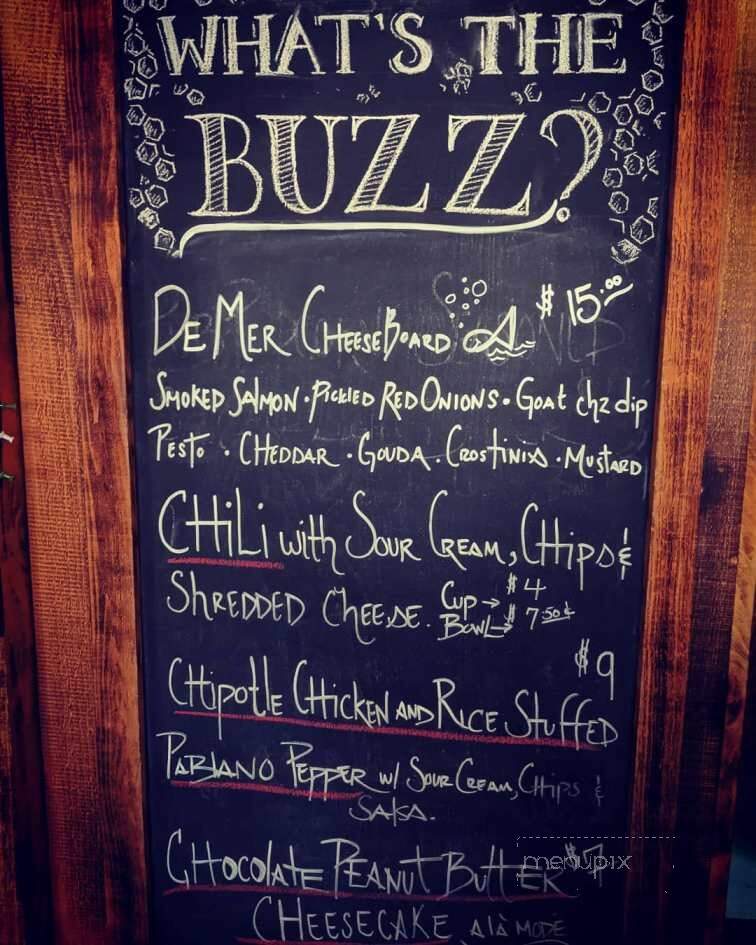 WHAT'S THE
BUZZ?
DE MER CHEESEBOARD $15.00
SMOKED SALMON · PICKLED RED ONIONS · GOAT chz dip
PESTO · CHEDDAR · GOUDA · CROSTINIS · MUSTARD
CHILI with SOUR CREAM, CHIPS &
SHREDDED CHEESE. CUP → $4
BOWL → $7.50¢
$9
CHIPOTLE CHICKEN AND RICE STUFFED
PABLANO PEPPER w/ SOUR CREAM, CHIPS &
SALSA.
CHOCOLATE PEANUT BUTTER $7
menupix
CHEESECAKE A LÀ MODE